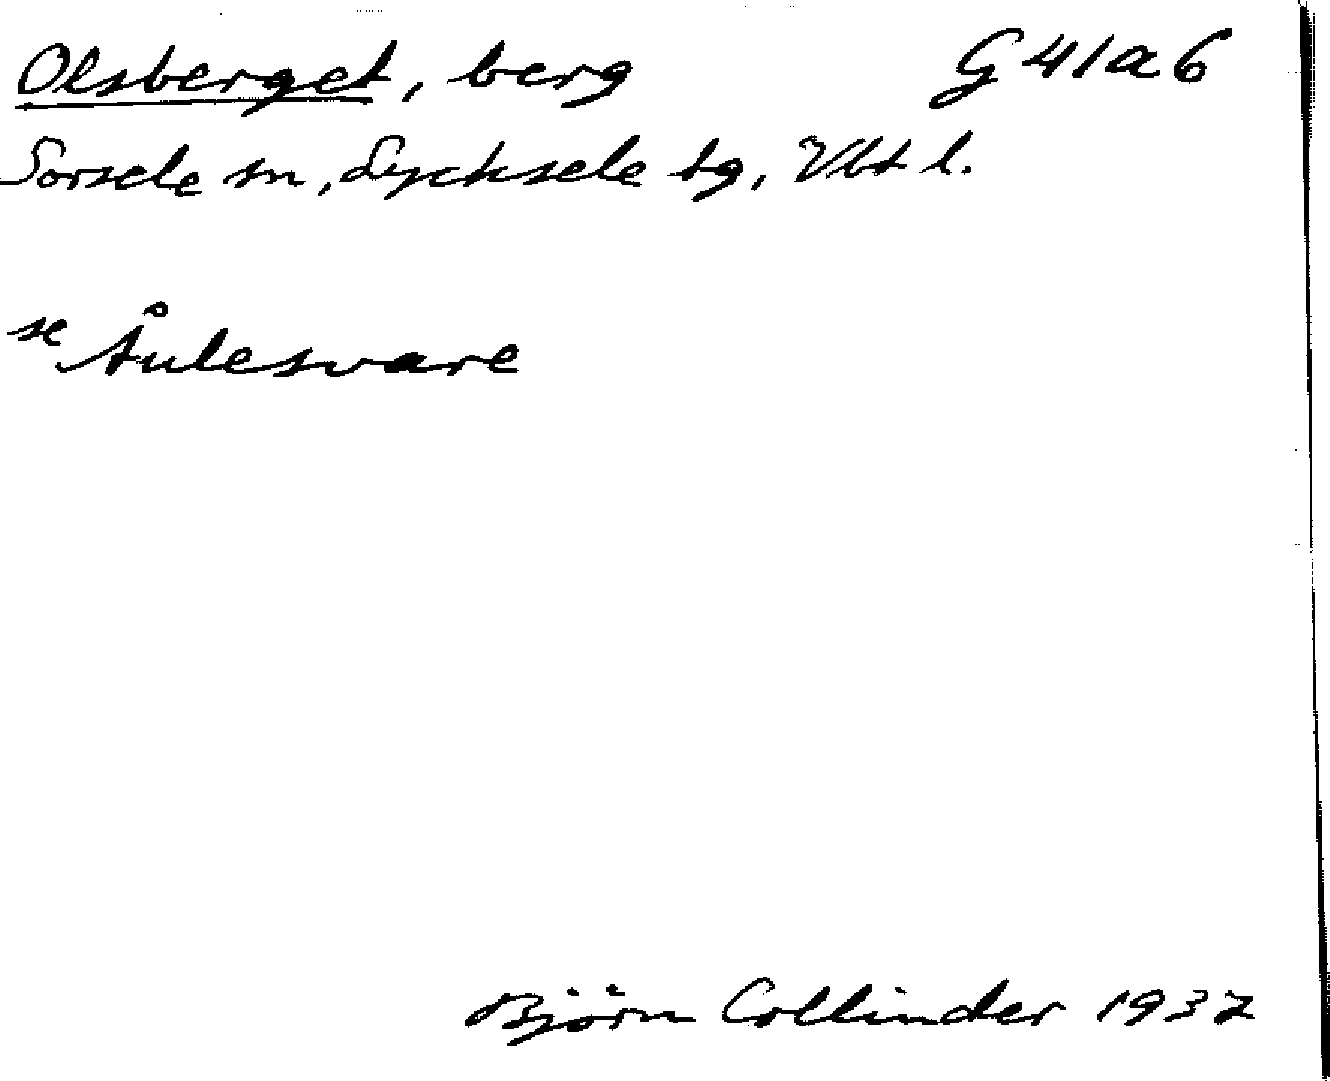 Olsberget, berg G 41 a 6
Sorsele sn, Lycksele tg, Vbt l.
se Åulesvare
Björn Collinder 1937